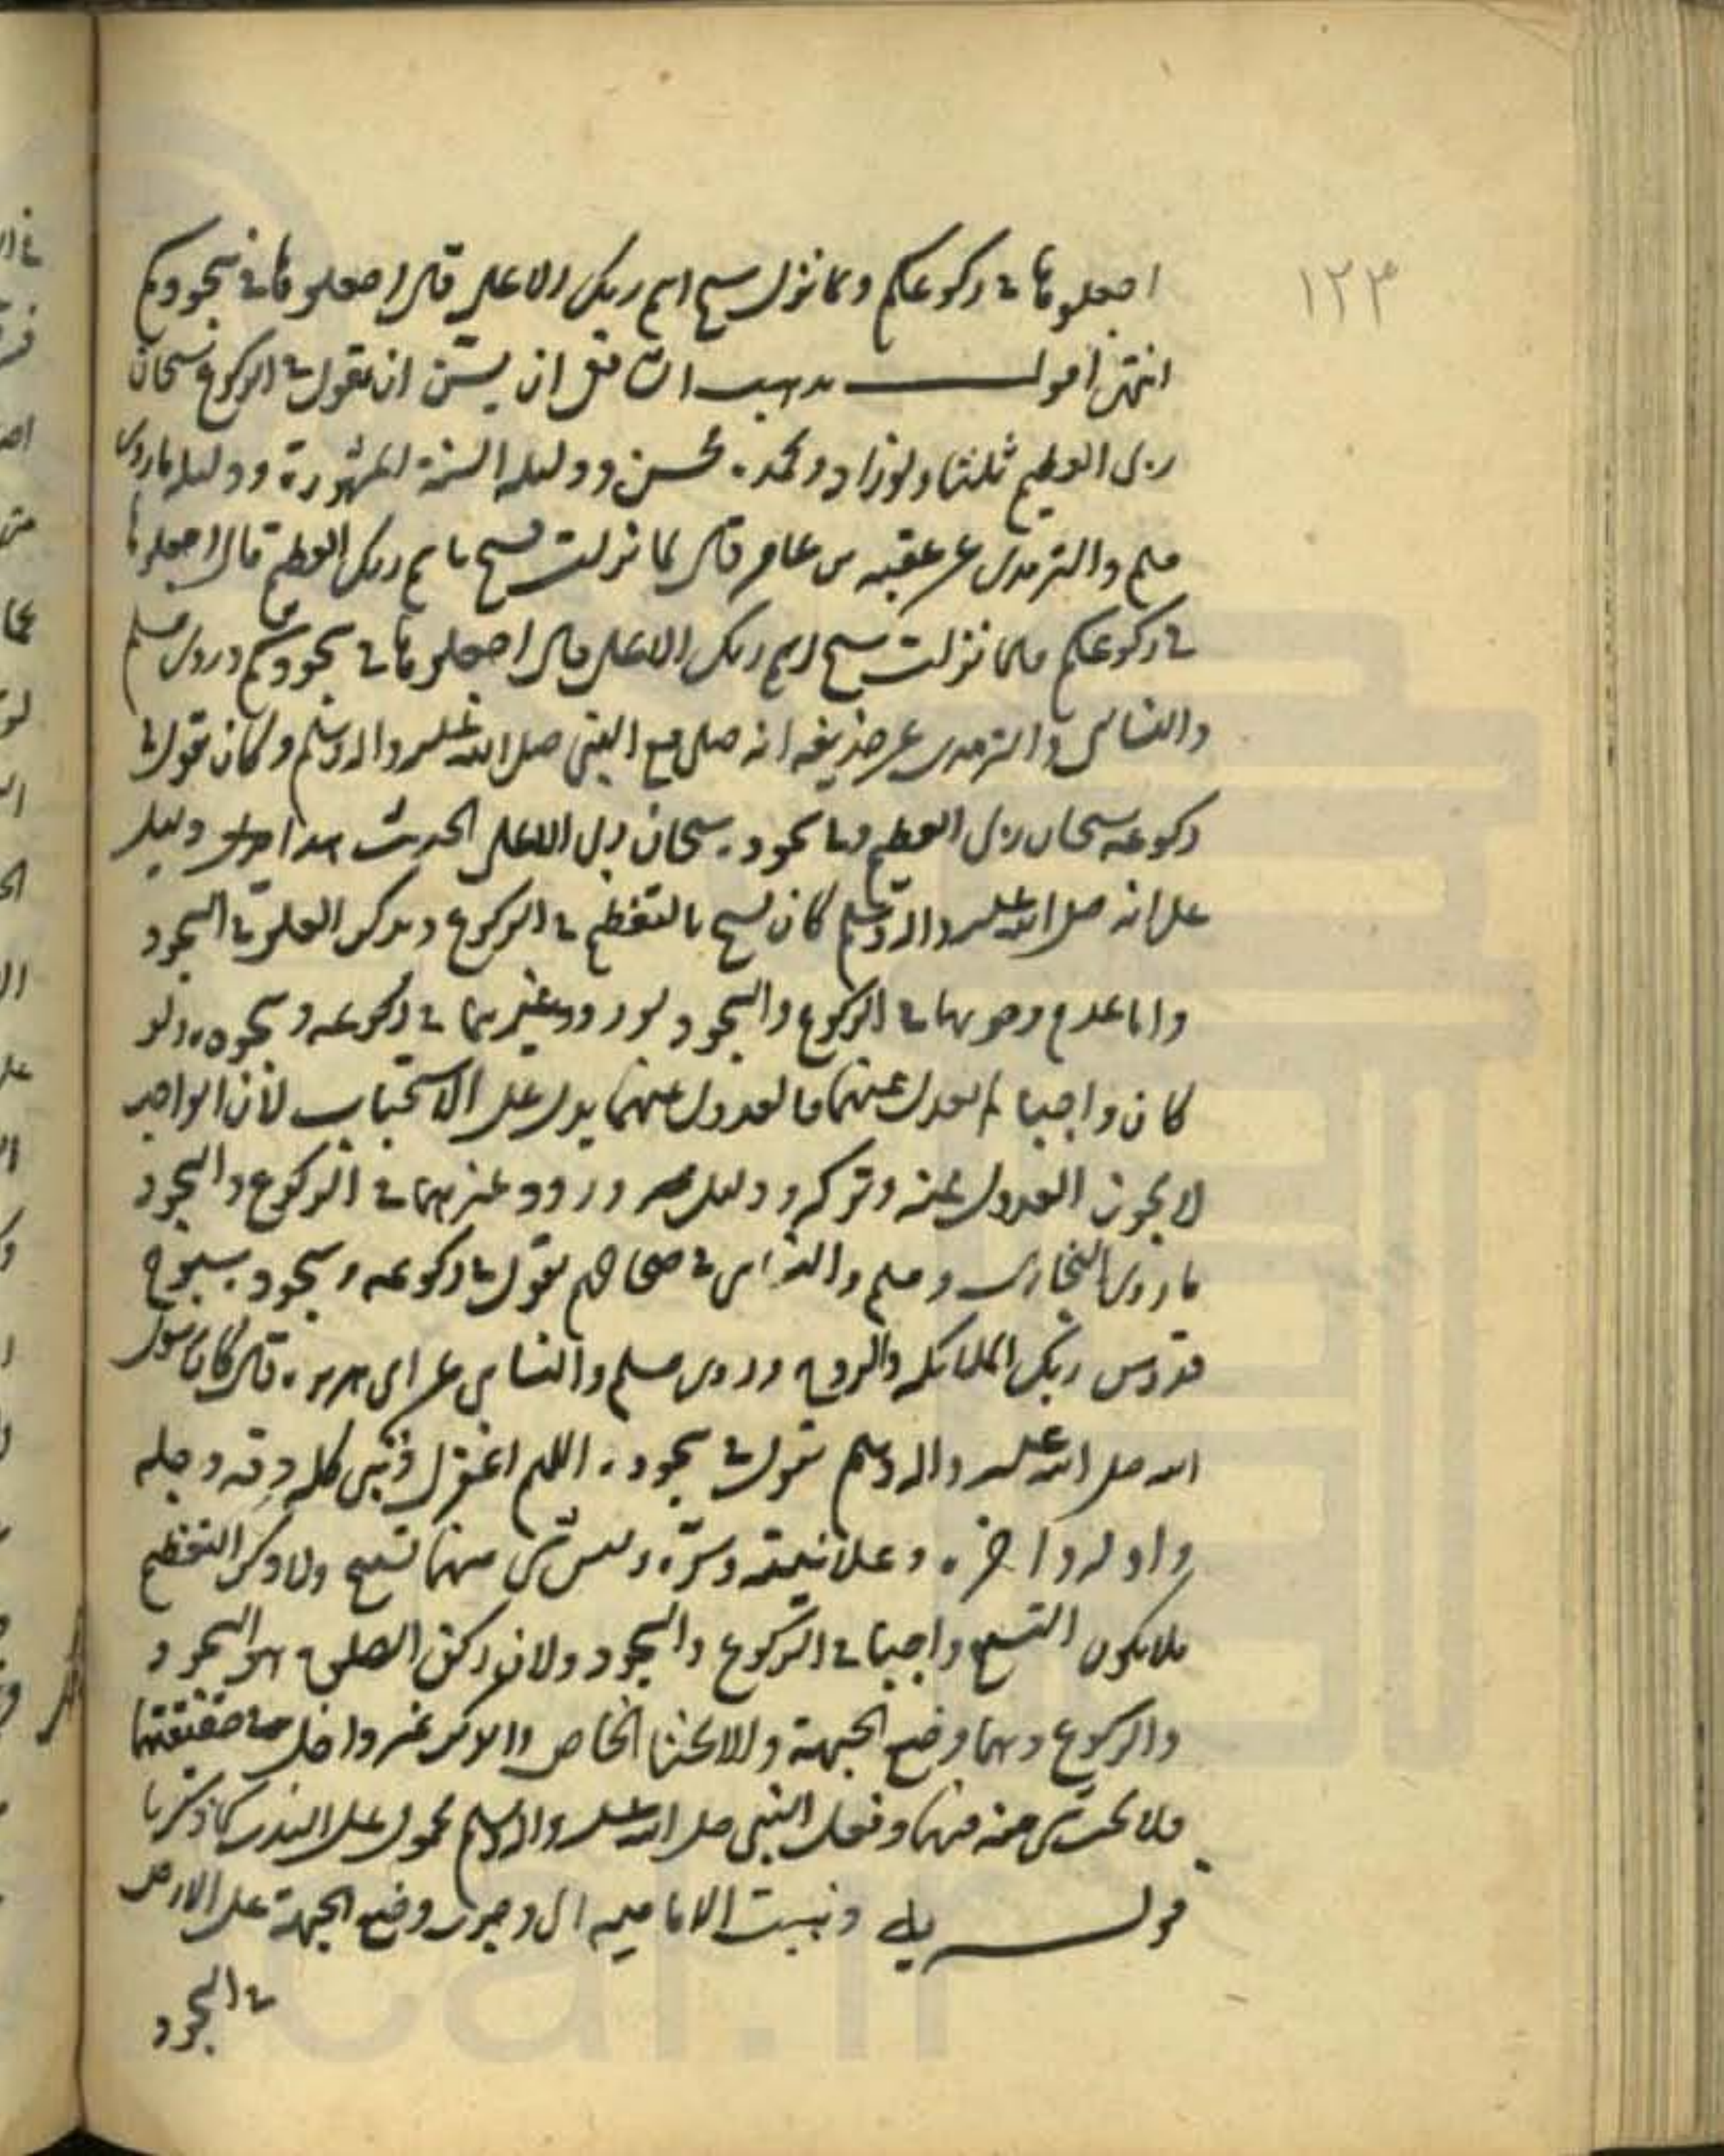 ١٢٣
اجعلوها في ركوعكم ولما نزل سبح اسم ربك الاعلى قال اجعلوها في سجودكم
انتهى اقول مذهب الشافعي ان يسن ان يقول في الركوع سبحان
ربي العظيم ثلثا ولو زاد وبحمده حسن ودليله السنة المشهورة ودليله ما روى
مسلم والترمذي عن عقبه بن عامر قال لما نزلت فسبح باسم ربك العظيم قال اجعلوها
في ركوعكم فلما نزلت سبح اسم ربك الاعلى قال اجعلوها في سجودكم وروى مسلم
والنسائي والترمذي عن حذيفه انه صلى مع النبي صلى الله عليه واله وسلم وكان يقول في
ركوعه سبحان ربي العظيم وفي سجوده سبحان ربي الاعلى الحديث هذا دليل
على انه صلى الله عليه واله وسلم كان يسبح بالتعظيم في الركوع ويذكر العلو في السجود
واما عدم وجوبهما في الركوع والسجود لورود غيرهما في ركوعه وسجوده ولو
كان واجبا لم يعدل عنهما فالعدول عنهما يدل على الاستحباب لأن الواجب
لا يجوز العدول عنه وتركه ودليل ورود غيرهما في الركوع والسجود
ما روى البخاري ومسلم والنسائي في صحاحهم يقول في ركوعه وسجوده سبوح
قدوس ربك الملائكه والروح وروى مسلم والنسائي عن ابي هريره قال كان رسول
الله صلى الله عليه واله وسلم يقول في سجوده اللهم اغفر لي ذنبي كله دقه وجله
واوله واخره وعلانيته وسره وليس شي منهما تسبيح ولا ذكر التعظيم
فلا يكون التسبيح واجبا في الركوع والسجود ولان ركن الصلوة هو السجود
والركوع وهما وضع الجبهة والانحنا الخاص والذكر غير داخل في حقيقتهما
فلا يجب شي منه فيهما وفعل النبي صلى الله عليه واله وسلم محمول على الندب كما ذكرنا
قوله وذهبت الاماميه الى وجوب وضع الجبهة على الارض
في السجود